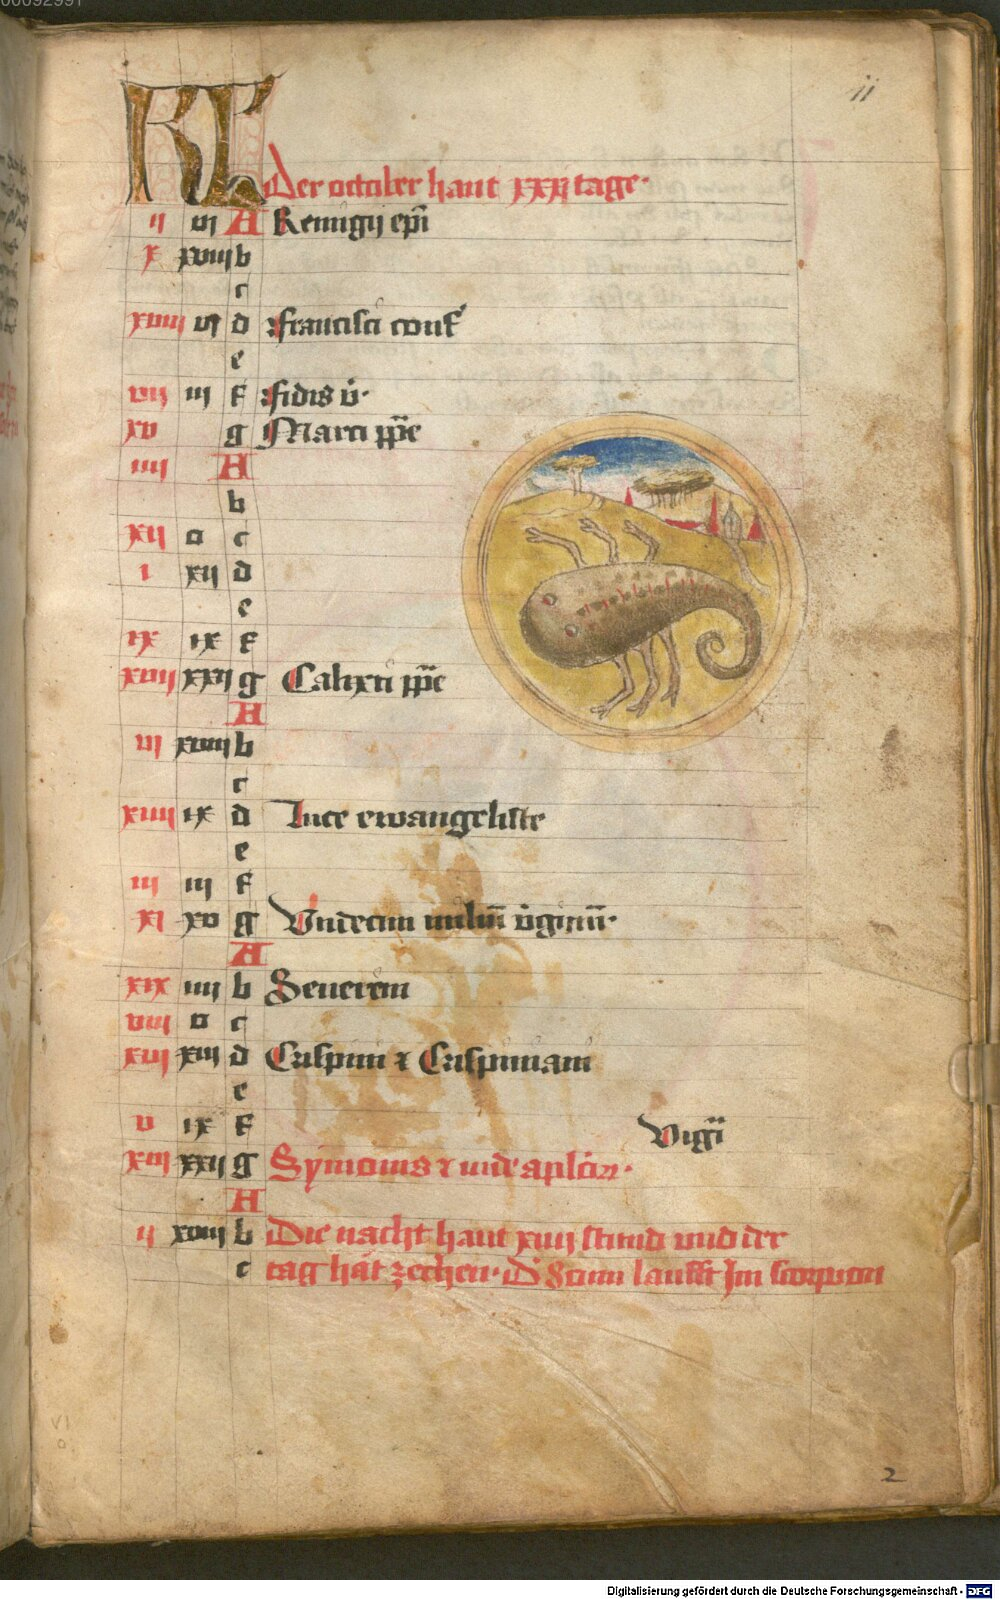 00092991
ii
KL
Der october haut xxxi tage·
ii vi A Remigij ep̄i
x xviii b
c
xviii vi d Francisci conf̄
e
vii iii f Fidis v̄·
xv g Marci pp̄e
iiii A
b
xii v c
i xii d
e
ix ix f
xvii xxi g Calixti pp̄e
A
vi xviii b
c
xiiii ix d Luce ewangeliste
e
iii iii f
xi xv g Vndecim miliū v̄ginū·
A
xix iiii b Seuerini
viii v c
xvi xiii d Crispini ⁊ Crispiniani
e
v ix f Vigī
xiii xxii g Symonis ⁊ iude aplōꝝ·
A
ii xviii b Die nacht haut xiiii stund vnd der
c tag hat zechen· D' Sunn laufft Jm scorpion
VI
2
Digitalisierung gefördert durch die Deutsche Forschungsgemeinschaft - DFG